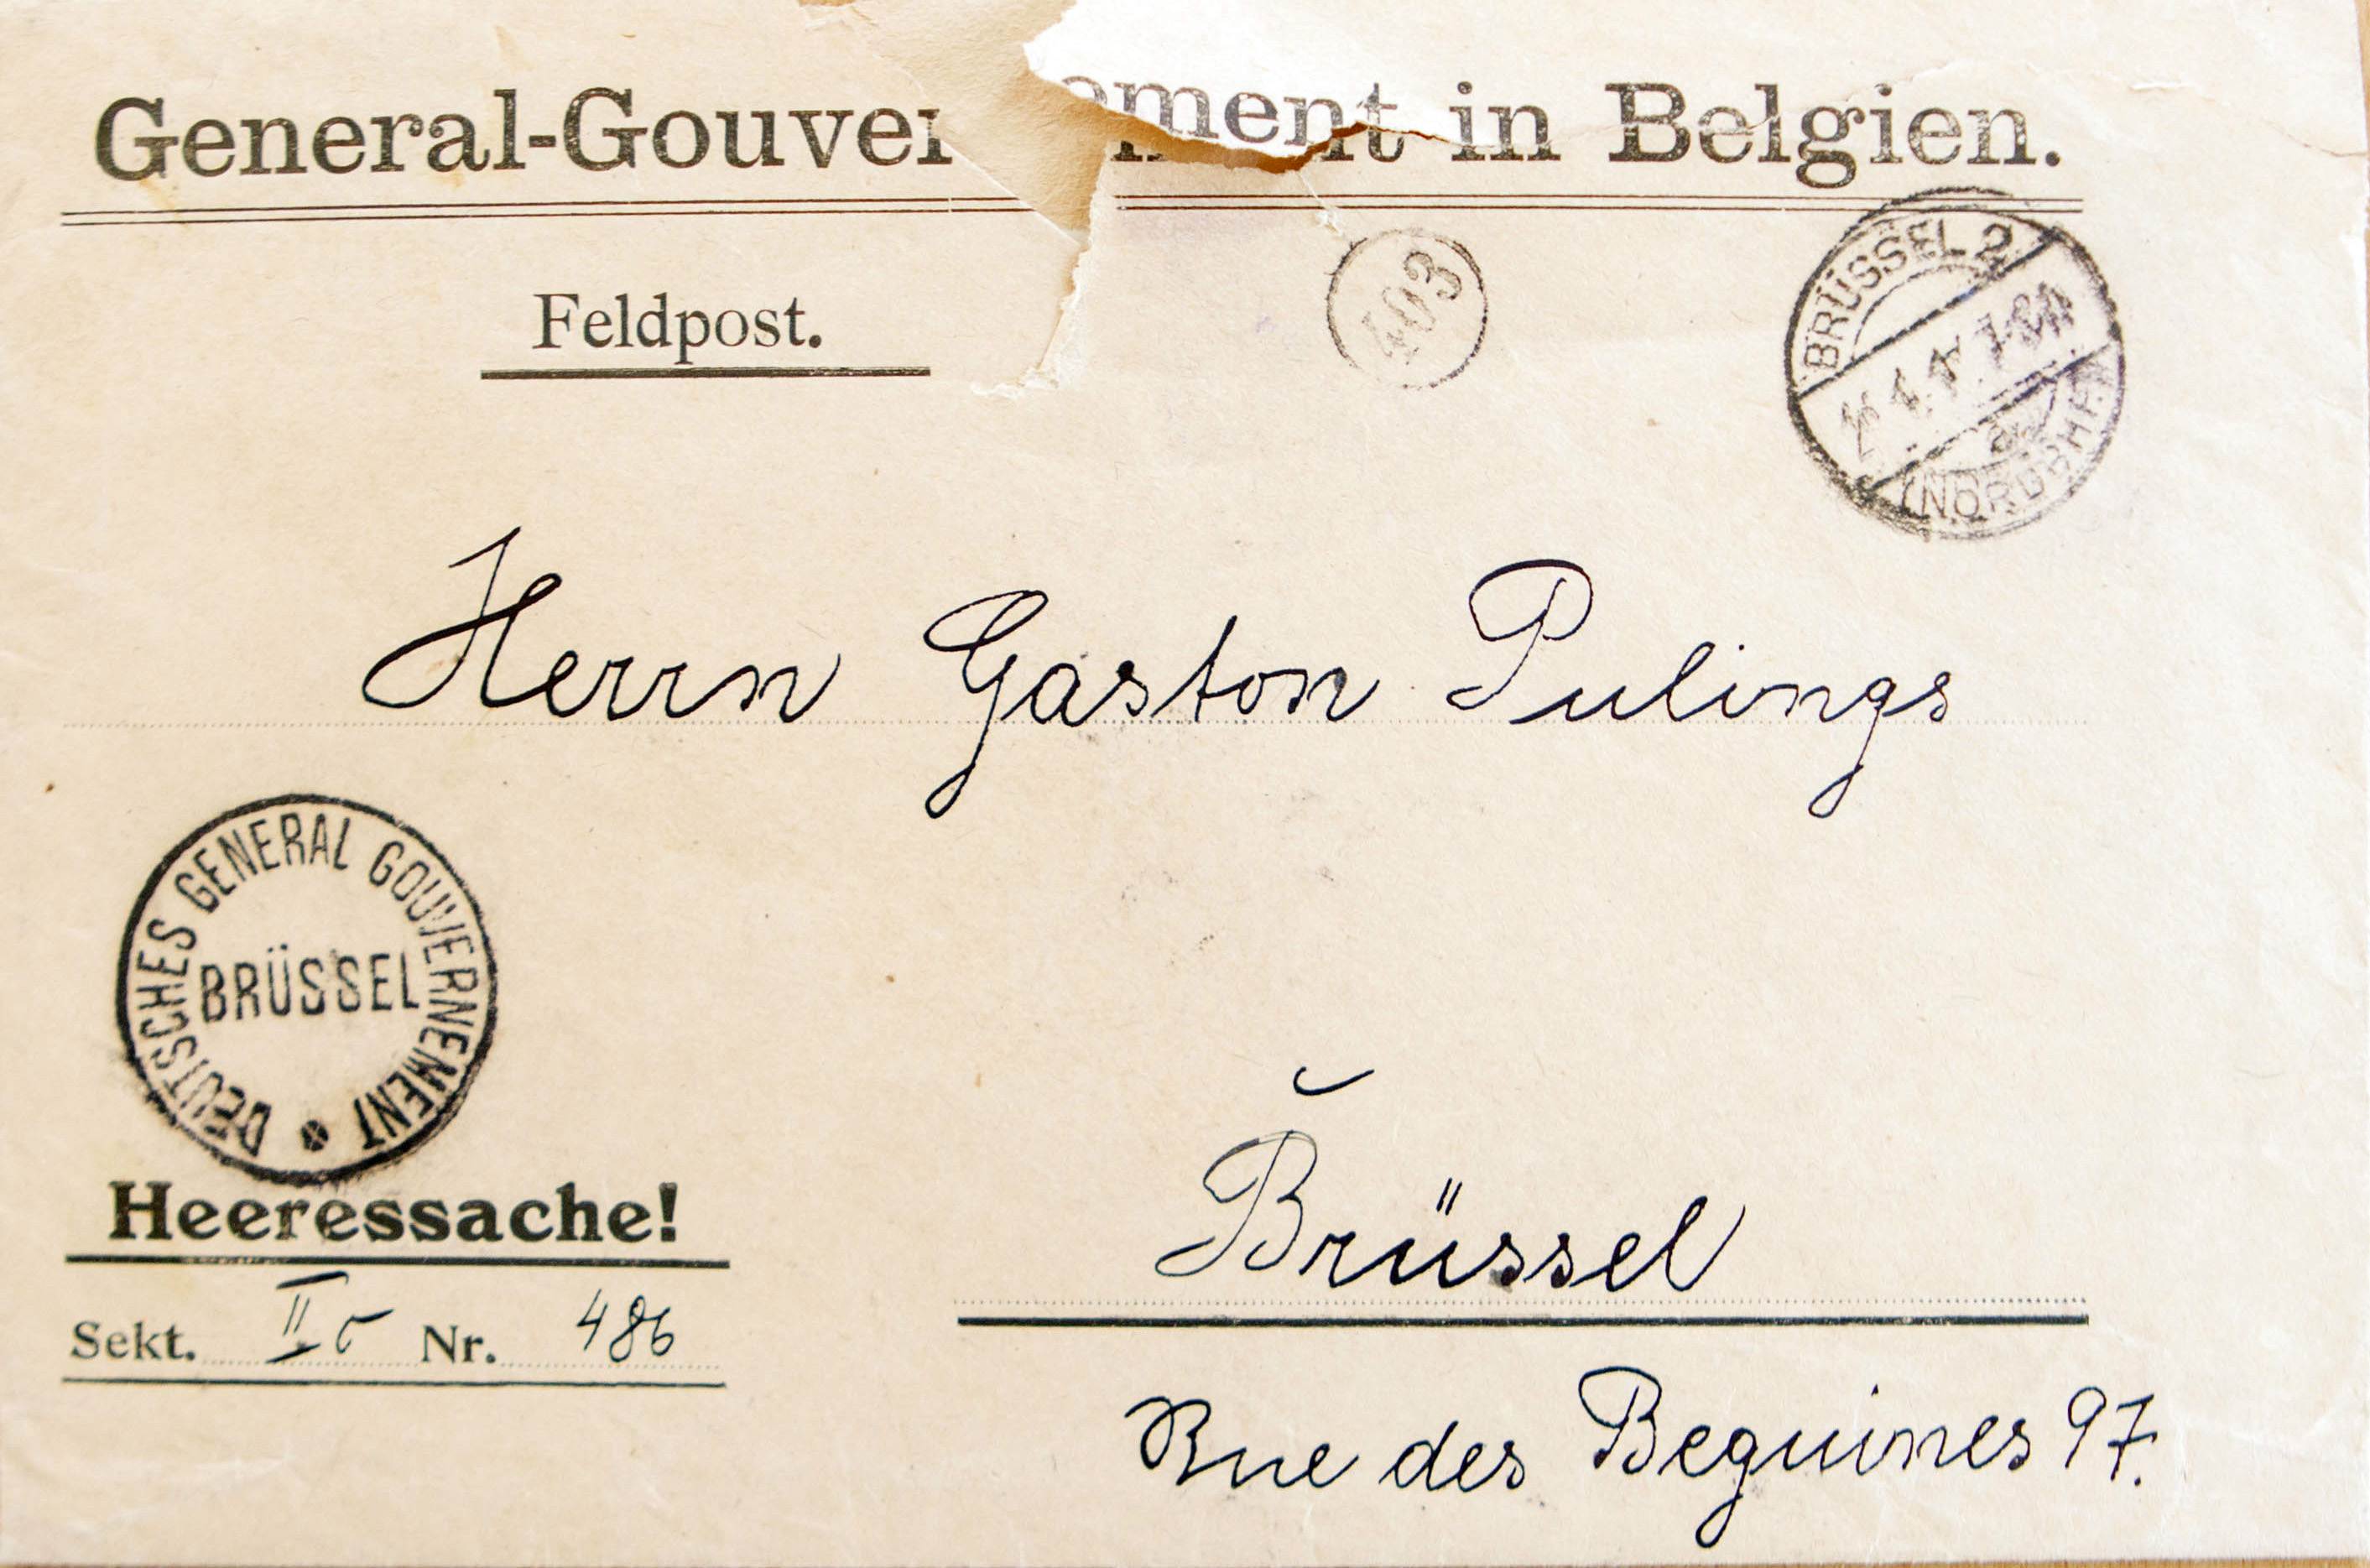 General-Gouver ement in Belgien.
Feldpost.
403
BRÜSSEL 2
(NORDBHF.)
Herrn Gaston Pulings
DEUTSCHES GENERAL GOUVERNEMENT
BRÜSSEL
Heeressache!
Sekt. II Nr. 486
Brüssel
Rue des Beguines 97.